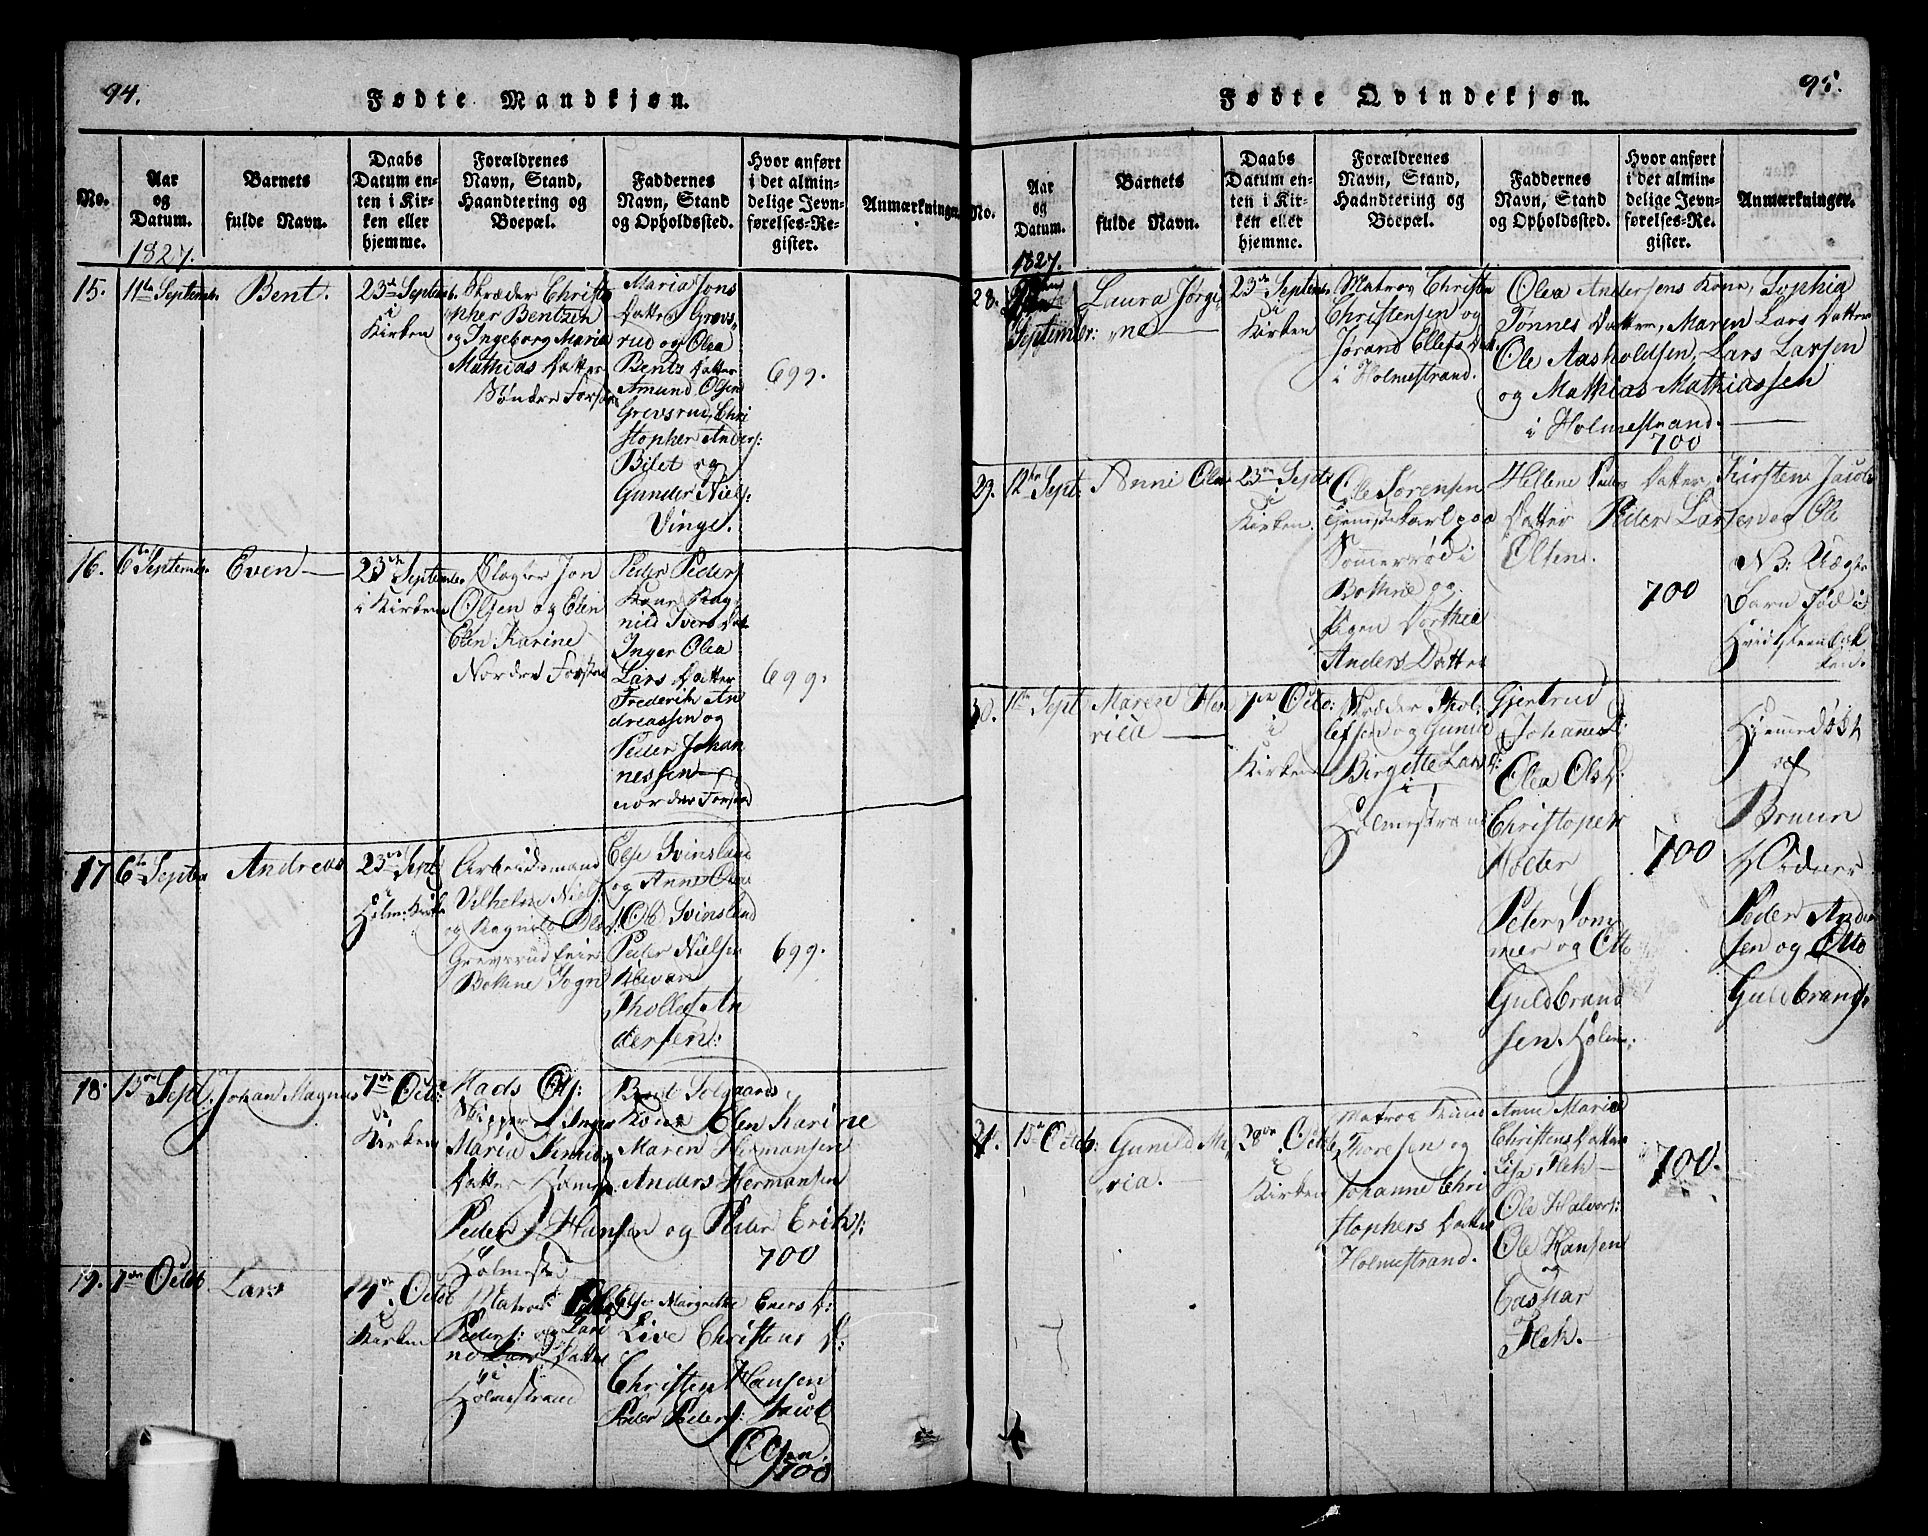 94.
Fødte Mandkjøn.
No.
Aar
og
Datum.
Barnets
fulde Navn.
Daabs
Datum en-
ten i Kir-
ken eller
hjemme.
Forældrenes
Navn, Stand,
Haandtering og
Boepæl.
Faddernes
Navn, Stand
og Opholdssted.
Hvor anført
i det almin-
delige Jevn-
førelses-Re-
gister.
Anmærkninger.
1827.
15.
11te Septemb.
Bent.
23de Septemb.
i
Kirken
Skræder Christo
pher Bentzen
og Ingeborg Maria
Mathias Datter
Søndre
Maria Jons
Datter Grevs
rud og Olea
Bents Datter
Amund Olsen
Grevsrud, Chri
stopher Anders:
Bilet og
Gunder Niels:
Vinge.
699.
16.
6te Septemb.
Even
23de Septemb.
i Kirken
Jon
Olsen og Elen
Elen Karine
Nordre
Peder Peders
Kone Rag
nild Ivers Dat
Inger Olea
Lars Datter
Frederik An
dreassen og
Peder Johan
nessen
nordre
699.
17
6te Septbr
Andreas
23de Sept
Holm: Kirke
Arbeidsmand
Vilhelm Niels
og Ragnild Ols
Grevsrud
Bothne Sogn
Else Svinsland
og Anne Olea
Ole Svinsland
Peder Nielsen
Klevan
Thollef An
dersen:
699.
18.
13de Sept.
Johan Magnus
7de Octb:
i
Kirken
Mads Ols:
Skipper Inger
Maria
Datter Holmest
Bent Solgaards
Kone Elen Karine
Maren Hermansen
Anders Hermansen
Peder Hansen og Peder Eriks:
Holmestrand
700
19.
7de Octb
Lars
14de Octob
i
Kirken
Matros
Peders: og Kari
ne Lars Datter
i
Holmestrand
Else Margrethe Evers D:
Live Christens D:
Christen Hansen
Peder Peders: Jacob
Olsen.
700
95.
Fødte Qvindekjøn.
No.
Aar
og
Datum.
Barnets
fulde Navn.
Daabs
Datum en-
ten i Kir-
ken eller
hjemme.
Forældrenes
Navn, Stand,
Haandtering og
Boepæl.
Faddernes
Navn, Stand
og Opholdssted.
Hvor anført
i det almin-
delige Jevn-
førelses-Re-
gister.
Anmærkninger.
1827.
28.
September:
Laura Jørgi
ne
23de Septemb.
i
Kirken
Matros Christen
Christensen og
Jørand Ellefs Dat.
i Holmestrand.
Olea Andersens Kone, Sophia
Tønnes Datter, Maren Lars Datter
Ole Aasholdsen, Lars Larsen
og Mathias Mathiassen
i Holmestrand.
700
29.
12te Sept.
Anne Olea
23de Septb
i
Kirken.
Ole Sørensen
Tjenestekarl paa
Sommerrød i
Bothne og
Pigen Dorthea
Anders Datter
Hellene Peders Datter, Kirstene Jacobs
Datter Peder Larsen og Ole
Olsen.
700
NB: Uægte
Barn Fød i
30.
1te Sept
Maren Hen
rica
7de Octo:
i
Kirken
Skræder Thol:
lefsen og Gunild
Birgitte Lars D:
i
Holmestrand
Gjertrud
Johannes D:
Olea Ols D:
Christopher
Holter
Peter Som
mer og Otto
Guldbrand
sen. Holm:
700
Hjemmedøbt
af
Bruun
Vidner
Peder Ander
sen og Otto
Guldbrands:
31.
15de Octob:
Gunild Ma
ria.
28de Octob,
i
Kirken
Matros Knud
Thoresen og
Johanne Chri
stophers Datter
Holmestrand.
Anne Maria
Christens Datter
Lisa Flek
Ole Halvors:
Ole Hansen
og
Caspar
Flek.
700.